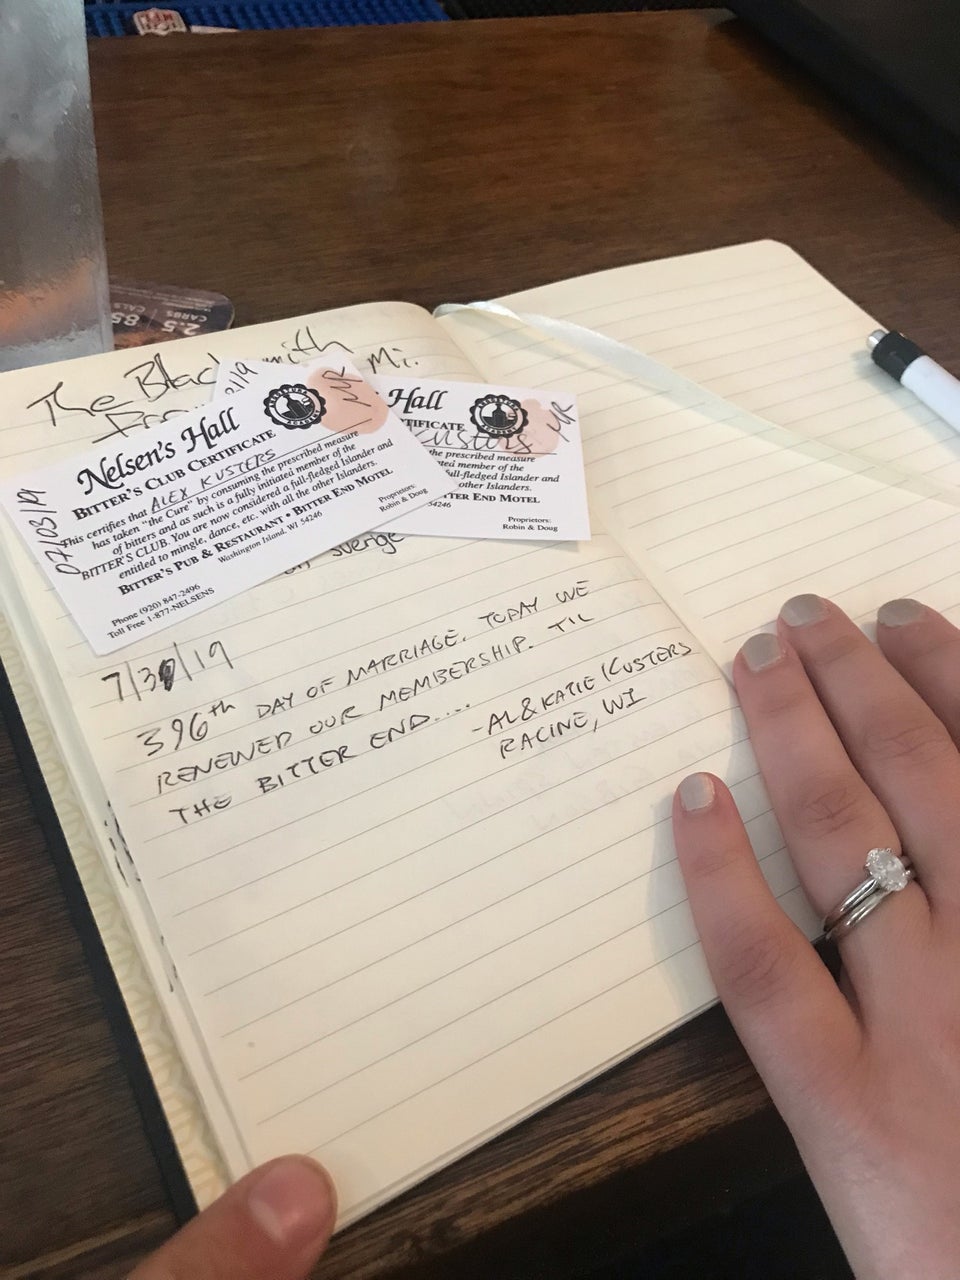 NFL
2.5
CARBS
85
CALS
The Blacksmith
Mi.
Nelsen's Hall
BITTER'S CLUB CERTIFICATE
This certifies that ALEX KUSTERS
has taken "the Cure" by consuming the prescribed measure
of bitters and as such is a fully initiated member of the
BITTER'S CLUB. You are now considered a full-fledged Islander and
entitled to mingle, dance, etc. with all the other Islanders.
BITTER'S PUB & RESTAURANT • BITTER END MOTEL
Washington Island, WI 54246
Phone (920) 847-2496
Toll Free 1-877-NELSENS
Proprietors:
Robin & Doug
07/03/19
MR
Hall
TIFICATE
Kusters
MR
the prescribed measure
ated member of the
full-fledged Islander and
other Islanders.
TER END MOTEL
54246
Proprietors:
Robin & Doug
Sverige
7/30/19
396th DAY OF MARRIAGE. TODAY WE
RENEWED OUR MEMBERSHIP. TIL
THE BITTER END....
-AL & KATIE KUSTERS
RACINE, WI